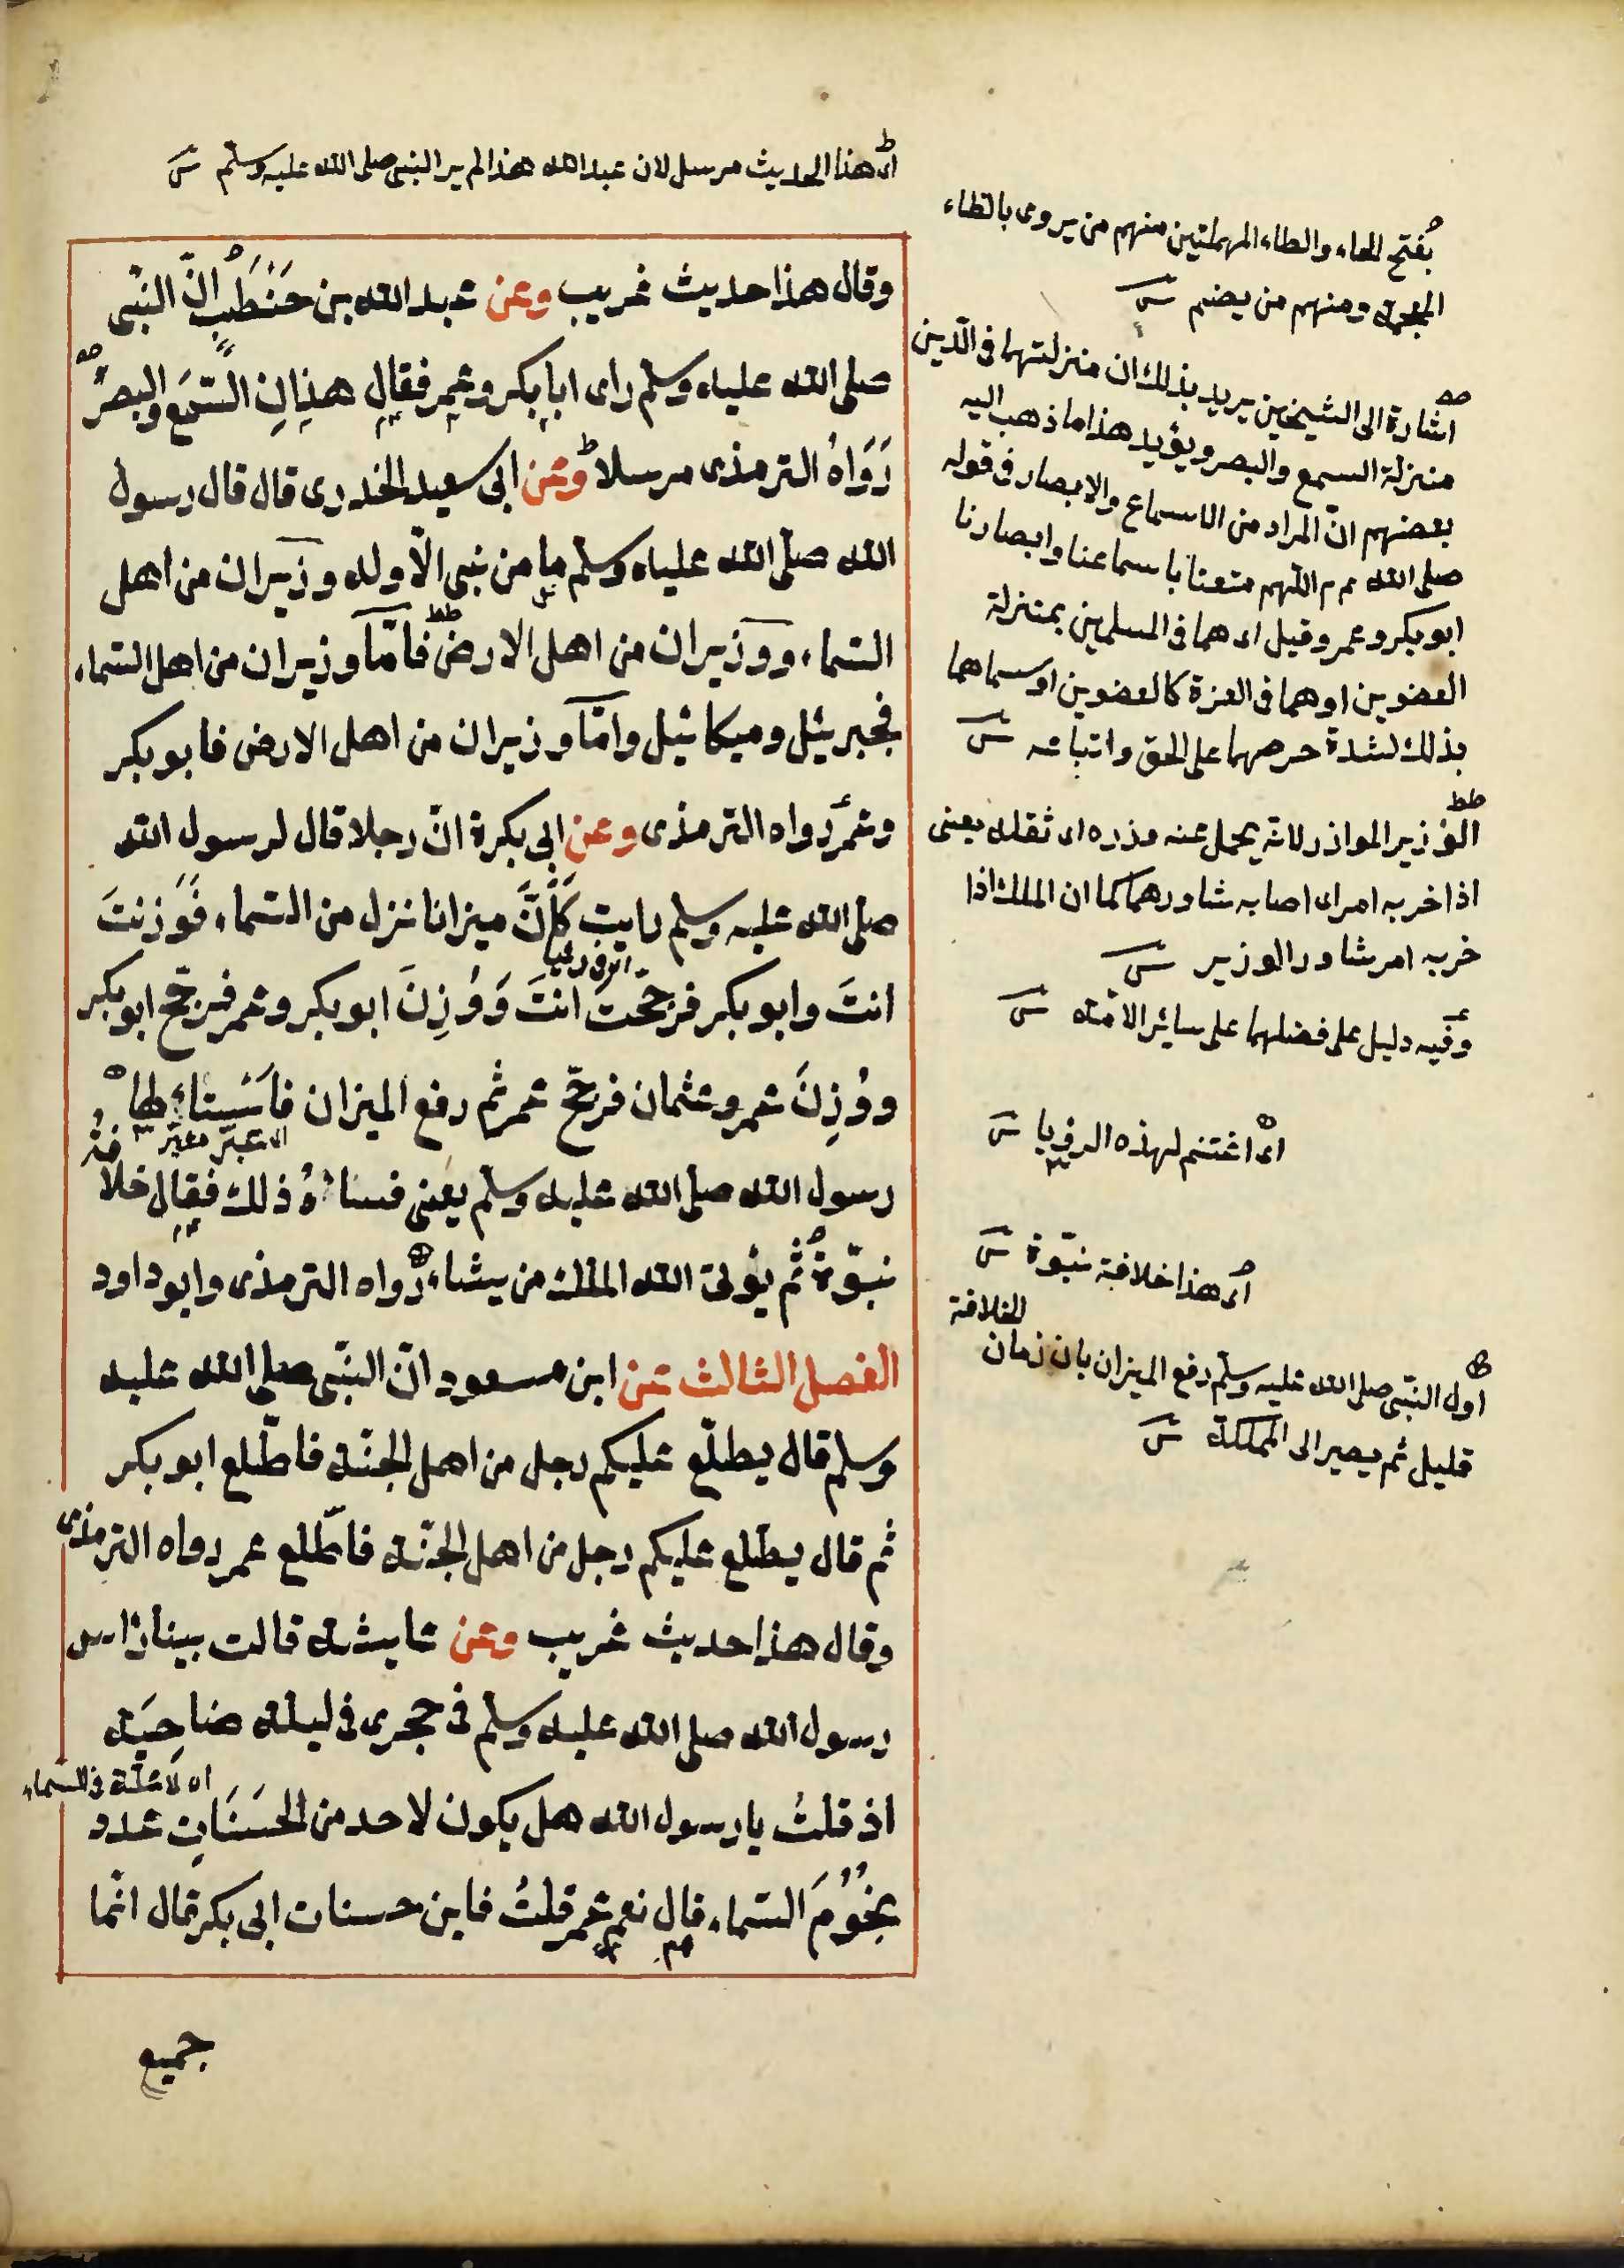 اى هذا الحديث مرسل لان عبد الله هذا لم ير النبى صلى الله عليه وسلم
وقال هذا حديث غريب وعن عبد الله بن حَنْطَبٍ انّ النبى
صلى الله عليه وسلم راى ابا بكر وعمر فقال هذانِ السّمَع والبصرُ
رَوَاهُ الترمذى مرسلا وعن ابى سعيد الخدرى قال قال رسول
الله صلى الله عليه وسلم ما من نبى الّا وله وزيران من اهل
السّماء ووزيران من اهل الارض فامّا وزيران من اهل السّماء
فجبرئيل وميكائيل وامّا وزيران من اهل الارض فابو بكر
وعمر رواه الترمذى وعن ابى بكرة انّ رجلا قال لرسول الله
صلى الله عليه وسلم رايت كَاَنَّ ميزانا نزل من السّماء فَوُزِنتَ
انتَ وابو بكر فرجحتَ انتَ وَوُزِنَ ابو بكر وعمر فرجّح ابو بكر
ووُزِنَ عمر وعثمان فرجّح عمر ثم رفع الميزان فاَسْتاءَ لها
رسول الله صلى الله عليه وسلم يعنى فساءهُ ذلك فقال خلافة
نبوّة ثُم يؤتى الله الملك من يشاء رواه الترمذى وابو داود
الفصل الثالث عن ابن مسعود انّ النبّى صلى الله عليه
وسلم قال يطلّع عليكم رجل من اهل الجنّة فاطّلع ابو بكر
ثم قال يطلع عليكم رجل من اهل الجنّة فاطّلع عمر رواه الترمذى
وقال هذا حديث غريب وعن عايشة قالت بينا راس
رسول الله صلى الله عليه وسلم فى حجرى فى ليلة ضاحِيَة
اذ قلتُ يا رسول الله هل يكون لاحد من الحَسَنَاتِ عدد
نجُوُمَ السّماء قال نعم عمر قلتُ فاين حسنات ابى بكر قال انّما
جميع
بفتح الحاء والطاء المهملتين منهم من يروى بالظاء
المعجمة ومنهم من يضم
اشارة الى الشيخين يريد بذلك ان منزلتهما فى الدّين
منزلة السمع والبصر ويؤيد هذا ما ذهب اليه
بعضهم انّ المراد من الاسماع والابصار فى قوله
صلى الله عم اللّهم متعنا باسماعنا وابصارنا
ابو بكر وعمر وقيل اى هما فى المسلمين بمنزلة
العضوين او هما فى العزة كالعضوين او سماهما
بذلك لشدة حرصهما على الحق واتباعه
الوزير الموازر لانه يحمل عنه وزره اى ثقله يعنى
اذا خربه امر اى اصابه شاورهما كما ان الملك اذا
خربه امر شاور الوزير
وفيه دليل على فضلهما على سائر الامّة
اى اغتنم لهذه الرؤيا
اى هذا خلافة نبّوة
اول النبّى صلى الله عليه وسلم رفع الميزان بان زمان الخلافة
قليل ثم يصير الى المملكة